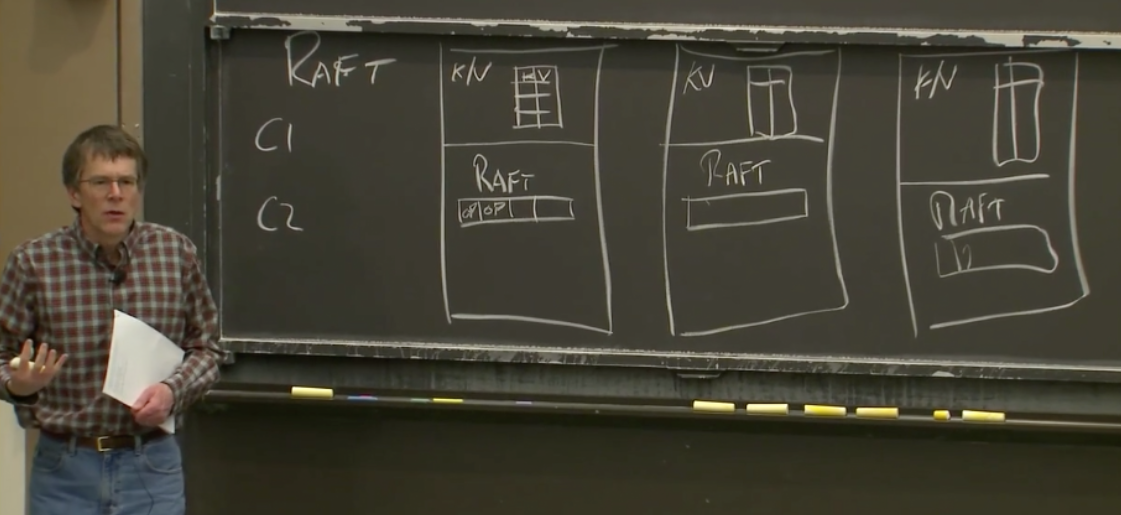 RAFT
C1
C2
K/V
K V
RAFT
OP OP
KV
RAFT
K/V
RAFT